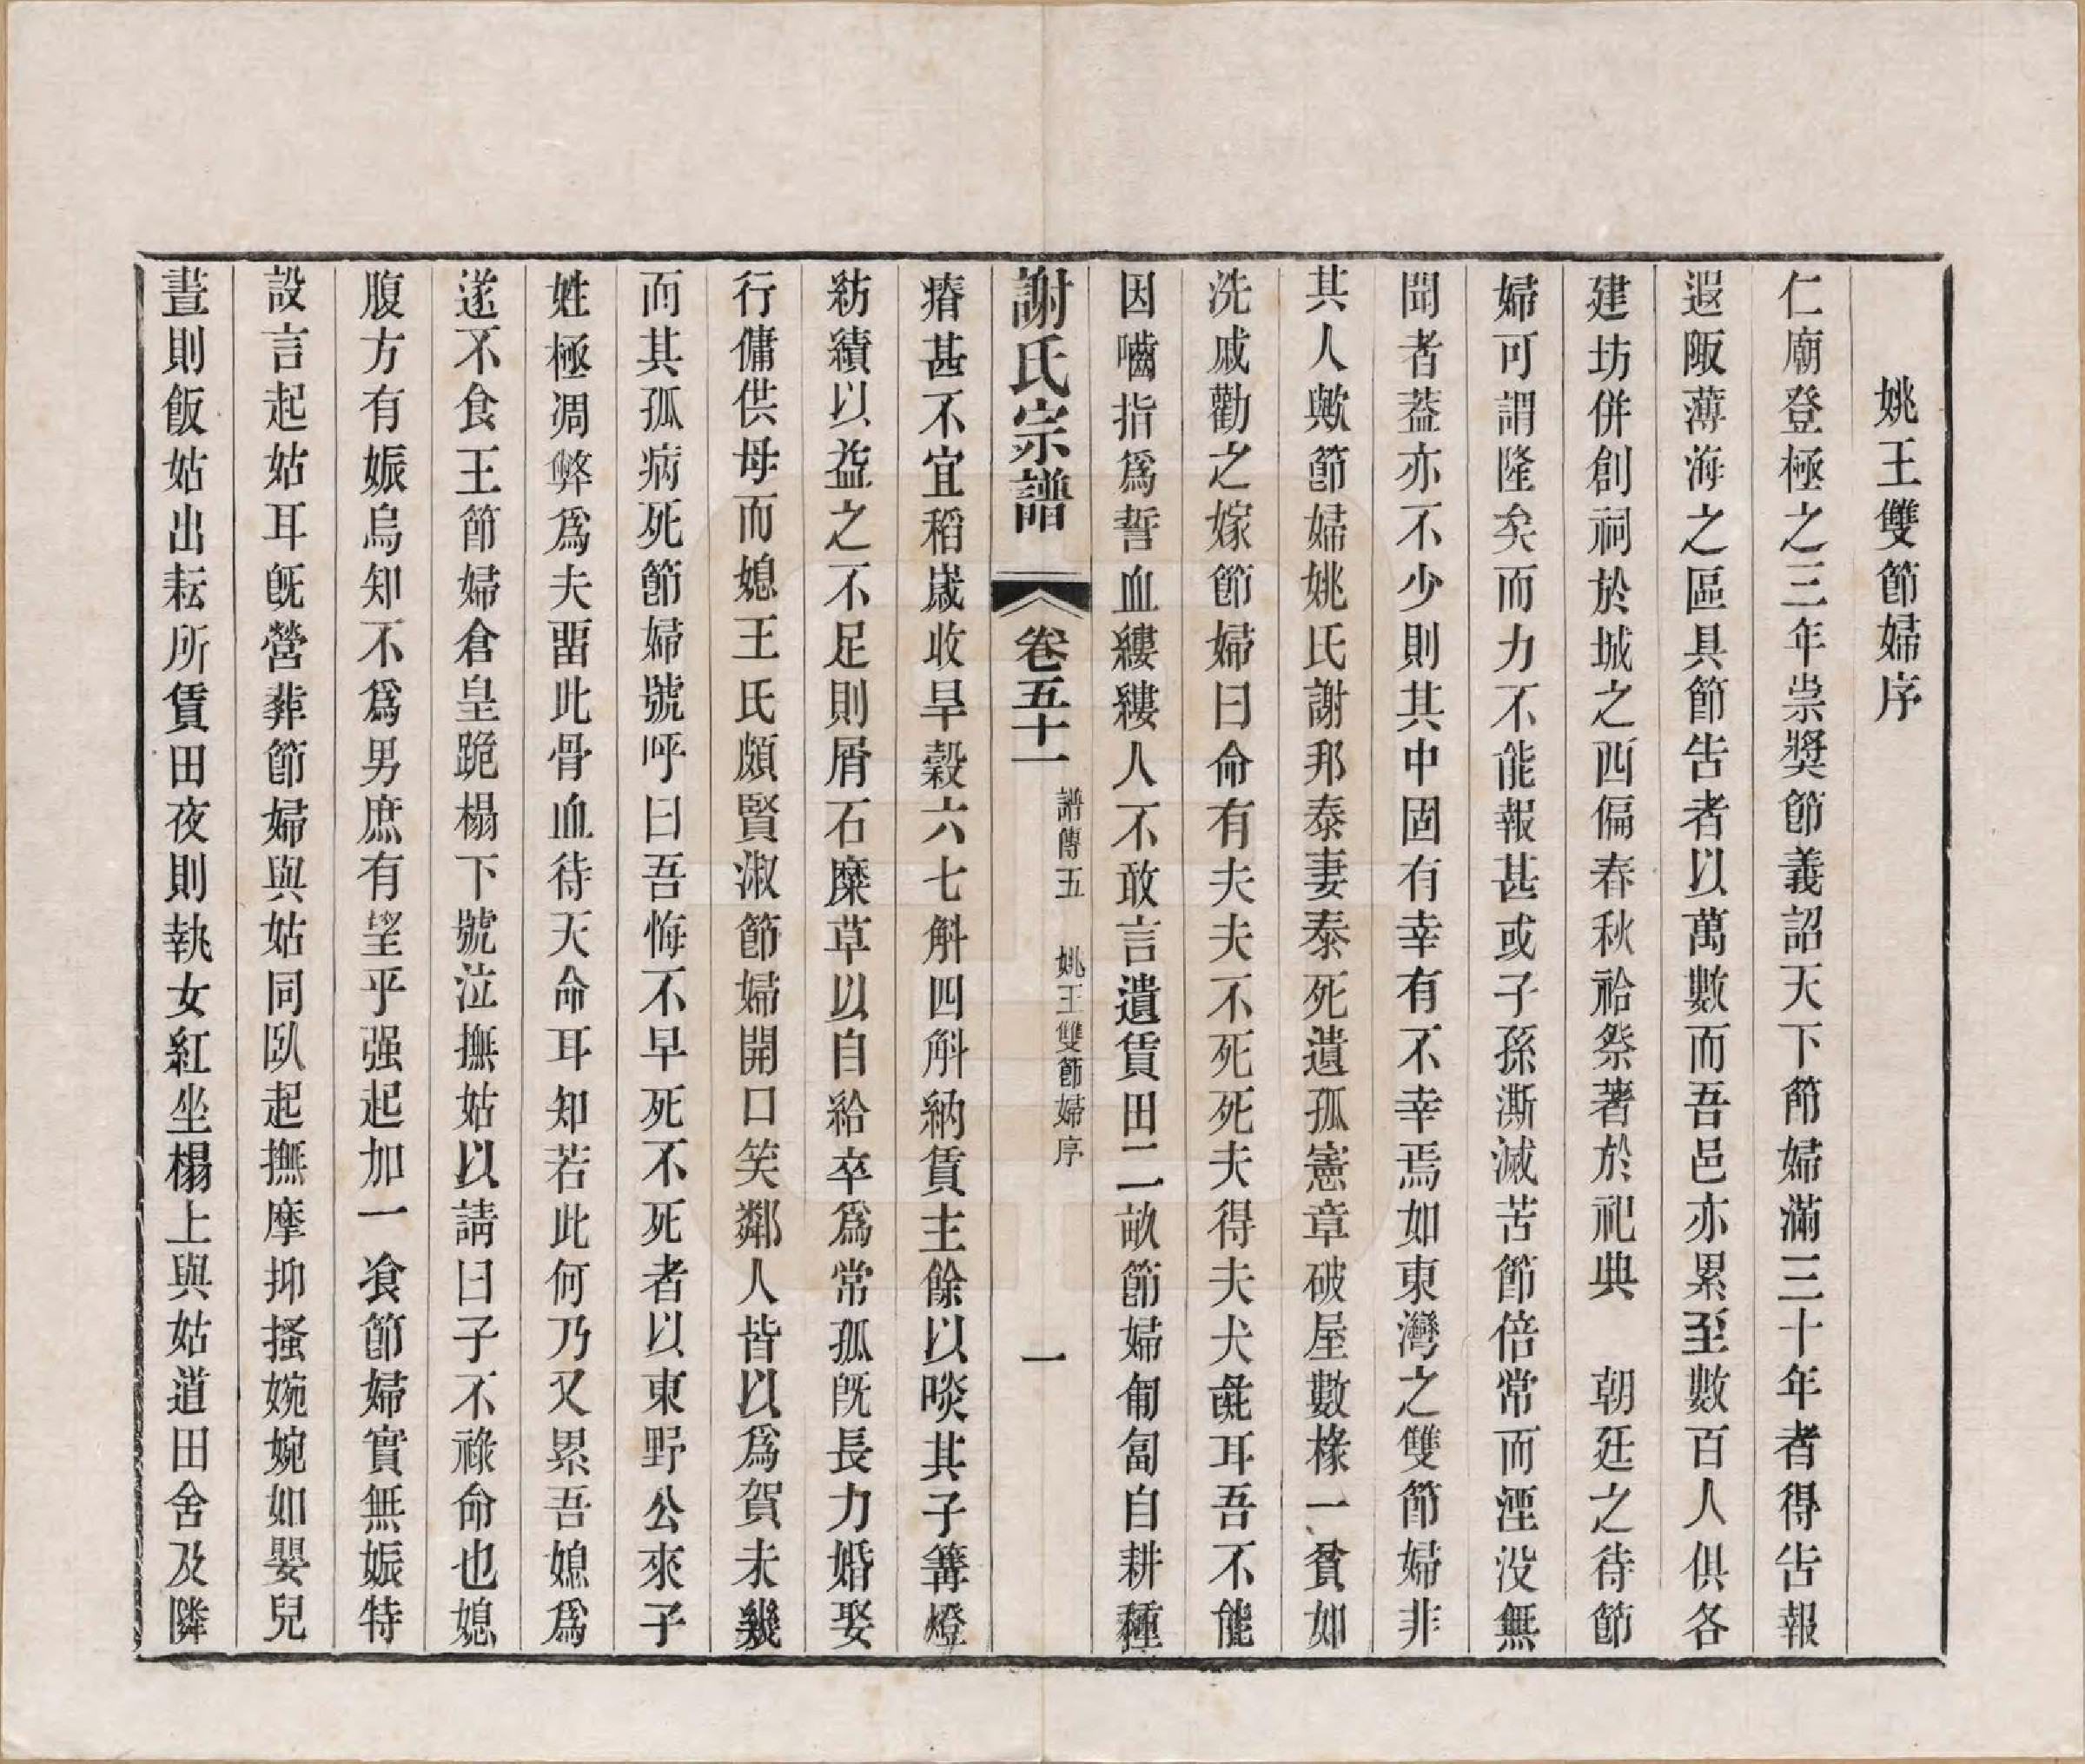 姚王雙節婦序
仁廟登極之三年崇獎節義詔天下節婦滿三十年者得告報
遐陬薄海之區具節告者以萬數而吾邑亦累至數百人俱各
建坊併創祠於城之西偏春秋祫祭著於祀典　朝廷之待節
婦可謂隆矣而力不能報甚或子孫澌滅苦節倍常而湮沒無
聞者葢亦不少則其中固有幸有不幸焉如東灣之雙節婦非
其人歟節婦姚氏謝邦泰妻泰死遺孤憲章破屋數椽一貧如
洗戚勸之嫁節婦曰命有夫夫不死死夫得夫犬彘耳吾不能
因嚙指爲誓血縷縷人不敢言遺賃田二畝節婦匍匐自耕種
謝氏宗譜　卷五十一　譜傳五　姚王雙節婦序　一
瘠甚不宜稻歲收旱穀六七斛四斛納賃主餘以啖其子篝燈
紡績以益之不足則屑石糜草以自給卒爲常孤旣長力婚娶
行傭供母而媳王氏頗賢淑節婦開口笑鄰人皆以爲賀未幾
而其孤病死節婦號呼曰吾悔不早死不死者以東野公來子
姓極凋弊爲夫畱此骨血待天命耳知若此何乃又累吾媳爲
遂不食王節婦倉皇跪榻下號泣撫姑以請曰子不祿命也媳
腹方有娠烏知不爲男庶有望乎强起加一飡節婦實無娠特
設言起姑耳旣營葬節婦與姑同臥起撫摩抑搔婉婉如嬰兒
晝則飯姑出耘所賃田夜則執女紅坐榻上與姑道田舍及隣